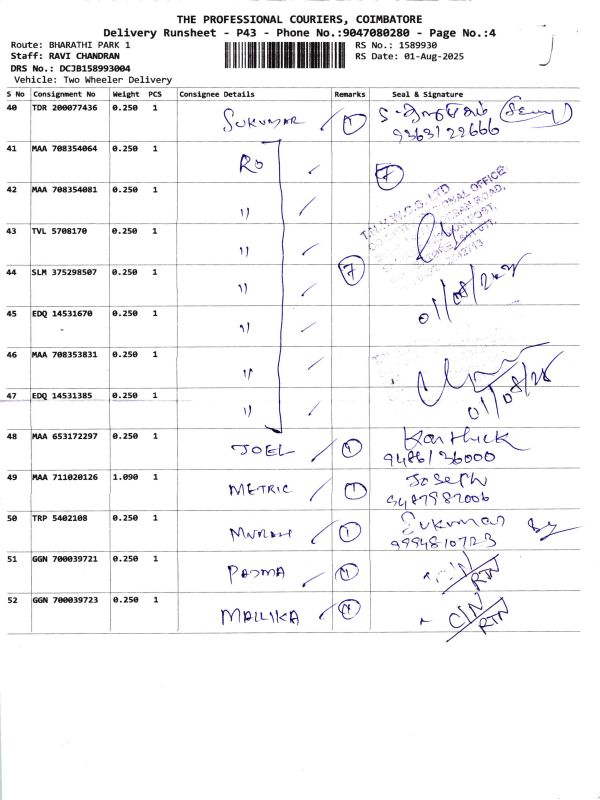 THE PROFESSIONAL COURIERS, COIMBATORE
Delivery Runsheet - P43 - Phone No.:9047080280 - Page No.:4
Route: BHARATHI PARK 1 RS No.: 1589930
Staff: RAVI CHANDRAN RS Date: 01-Aug-2025
DRS No.: DCJB158993004
Vehicle: Two Wheeler Delivery
S No Consignment No Weight PCS Consignee Details Remarks Seal & Signature
40 TDR 200077436 0.250 1 SUKUMAR 1
9363122666
41 MAA 708354064 0.250 1 RO 7
42 MAA 708354081 0.250 1 "
43 TVL 5708170 0.250 1 "
44 SLM 375298507 0.250 1 " 7
45 EDQ 14531670 0.250 1 "
46 MAA 708353831 0.250 1 "
47 EDQ 14531385 0.250 1 "
48 MAA 653172297 0.250 1 JOEL 1 Karthick
9486136000
49 MAA 711020126 1.090 1 METRIC 1 Joseph
9487982006
50 TRP 5402108 0.250 1 1 Sukumar
9994810723
51 GGN 700039721 0.250 1 PADMA C/N RTN
52 GGN 700039723 0.250 1 MALLIKA C/N RTN